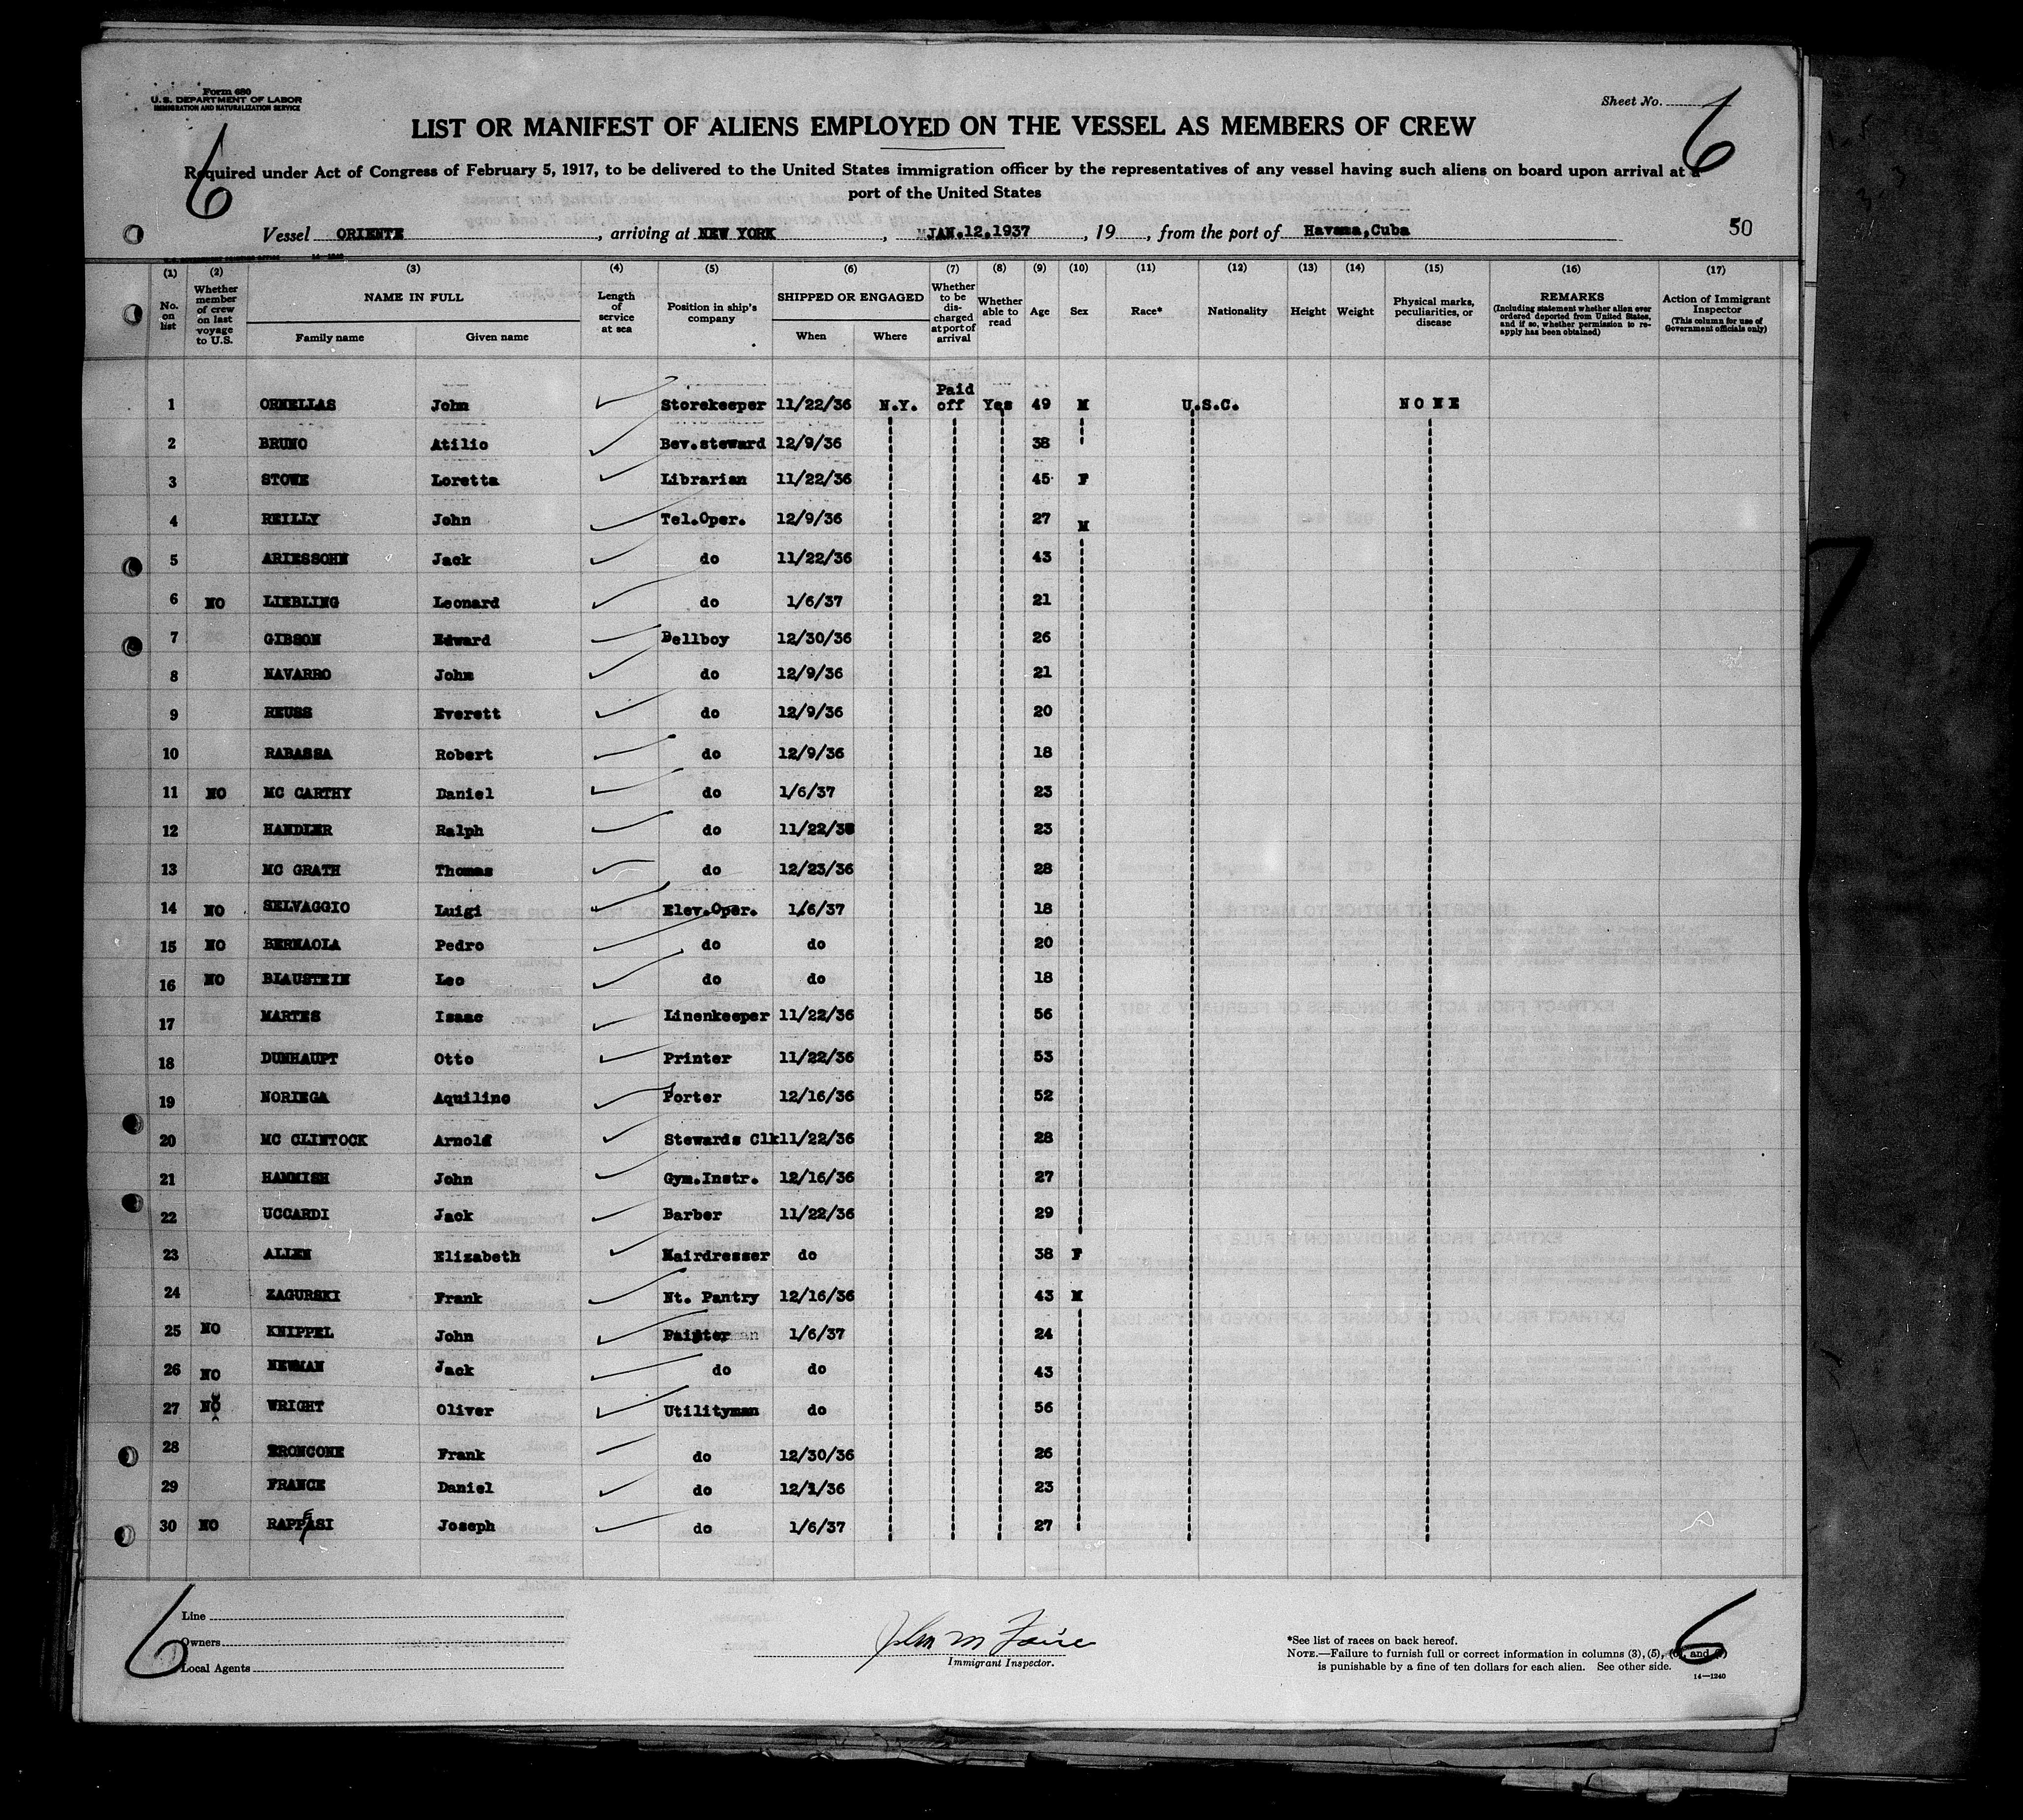 Form 680
U.S. DEPARTMENT OF LABOR
IMMIGRATION AND NATURALIZATION SERVICE
Sheet No. 6
6
LIST OR MANIFEST OF ALIENS EMPLOYED ON THE VESSEL AS MEMBERS OF CREW
Required under Act of Congress of February 5, 1917, to be delivered to the United States immigration officer by the representatives of any vessel having such aliens on board upon arrival at a
port of the United States
Vessel ORIENTE, arriving at NEW YORK, JAN.12.1937, 19, from the port of Havana,Cuba
50
(1) (2) (3) (4) (5) (6) (7) (8) (9) (10) (11) (12) (13) (14) (15) (16) (17)
No. on list Whether member of crew on last voyage to U.S. NAME IN FULL Family name Given name Length of service at sea Position in ship's company SHIPPED OR ENGAGED When Where Whether to be discharged at port of arrival Whether able to read Age Sex Race* Nationality Height Weight Physical marks, peculiarities, or disease REMARKS (Including statement whether alien ever ordered deported from United States, and if so, whether permission to reapply has been obtained) Action of Immigrant Inspector (This column for use of Government officials only)
1 ORNELLAS John Storekeeper 11/22/36 N.Y. Paid off Yes 49 M U.S.C. NONE
2 BRUNO Atilio Bev.steward 12/9/36 38
3 STOWE Loretta Librarian 11/22/36 45 F
4 REILLY John Tel.Oper. 12/9/36 27 M
5 ARIESSOHN Jack do 11/22/36 43
6 NO LIEBLING Leonard do 1/6/37 21
7 GIBSON Edward Bellboy 12/30/36 26
8 NAVARRO John do 12/9/36 21
9 REUSS Everett do 12/9/36 20
10 RABASSA Robert do 12/9/36 18
11 NO MC CARTHY Daniel do 1/6/37 23
12 HANDLER Ralph do 11/22/36 23
13 MC GRATH Thomas do 12/23/36 28
14 NO SELVAGGIO Luigi Elev.Oper. 1/6/37 18
15 NO BERNAOLA Pedro do do 20
16 NO BLAUSTEIN Leo do do 18
17 MARTES Isaac Linenkeeper 11/22/36 56
18 DUNHAUPT Otto Printer 11/22/36 53
19 NORIEGA Aquilino Porter 12/16/36 52
20 MC CLINTOCK Arnold Stewards Clk 11/22/36 28
21 HAMMISH John Gym.Instr. 12/16/36 27
22 UCCARDI Jack Barber 11/22/36 29
23 ALLEN Elizabeth Hairdresser do 38 F
24 ZAGURSKI Frank Nt. Pantry 12/16/36 43 M
25 NO KNIPPEL John Painter 1/6/37 24
26 NO NEWMAN Jack do do 43
27 NO WRIGHT Oliver Utilityman do 56
28 TRONCONE Frank do 12/30/36 26
29 FRANCE Daniel do 12/1/36 23
30 NO RAPPESI Joseph do 1/6/37 27
6
Line
Owners
Local Agents
Immigrant Inspector.
*See list of races on back hereof.
NOTE.—Failure to furnish full or correct information in columns (3), (5), (6), and (7)
is punishable by a fine of ten dollars for each alien. See other side.
14—1240
6